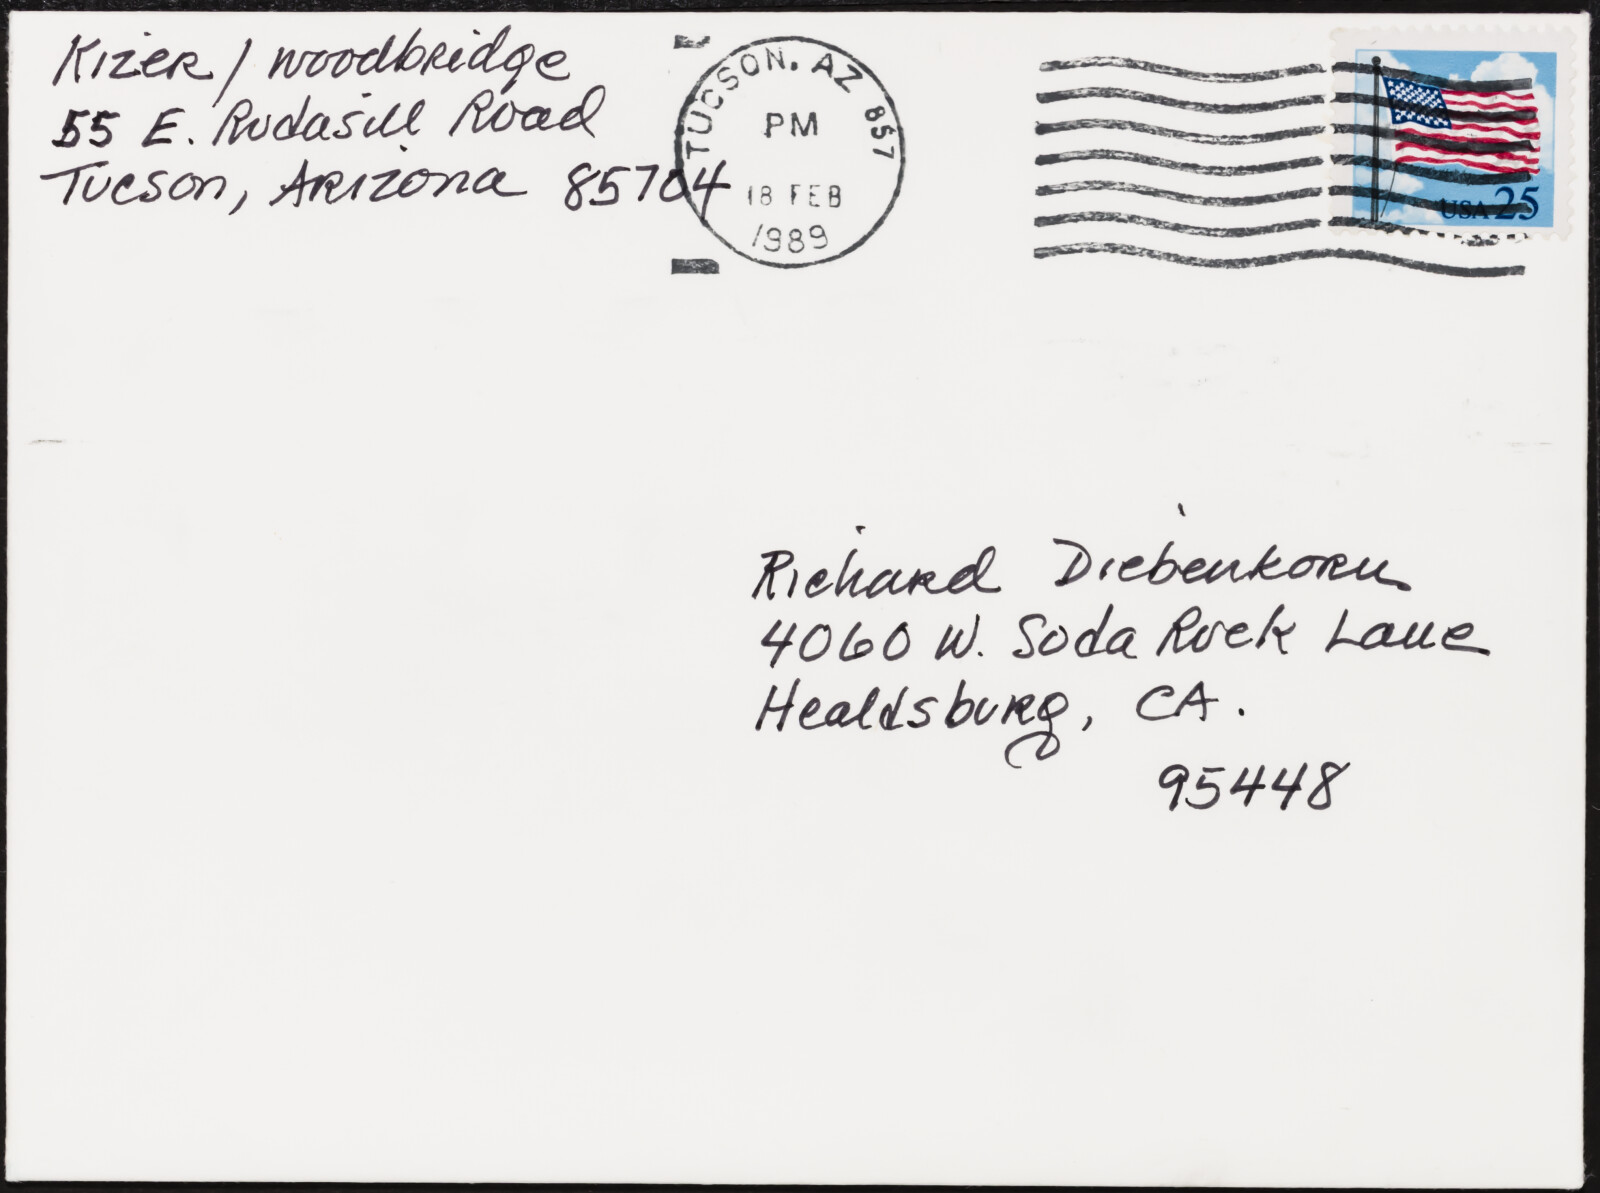 Kizer / Woodbridge
55 E. Rudasill Road
Tucson, Arizona 85704
TUCSON, AZ 857
PM
18 FEB
1989
USA 25
Richard Diebenkorn
4060 W. Soda Rock Lane
Healdsburg, CA.
95448